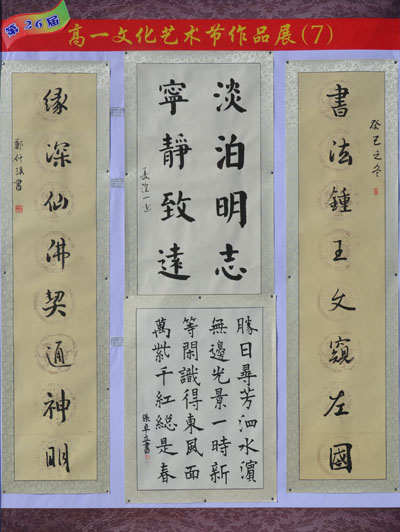 第26届
高一文化艺术节作品展(7)
書法鍾王文窺左國
癸巳之冬
淡泊明志
寧靜致遠
勝日尋芳泗水濱
無邊光景一時新
等閑識得東風面
萬紫千紅總是春
緣深仙佛契通神明